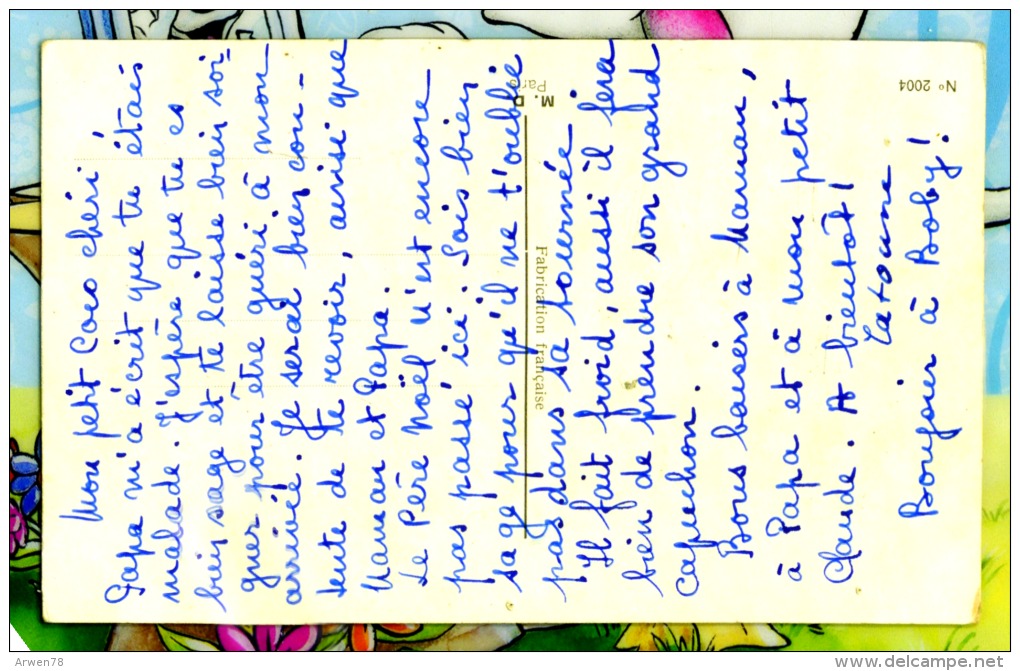 Mon petit Coco chéri,
Papa m'a écrit que tu étais
malade. J'espère que tu es
bien sage et te laisse bien soi-
gner pour être guéri à mon
arrivée. Je serai bien con-
tente de te revoir, ainsi que
Maman et Papa.
Le Père Noël n'est encore
pas passé ici. Sois bien
sage pour qu'il ne t'oublie
pas dans sa tournée
Il fait froid, aussi il fera
bien de prendre son grand
capuchon.
Bons baisers à Maman,
à Papa et à mon petit
Claude. A bientôt!
Tatane
Bonjour à Boby!
Fabrication française
M. D
Paris
N° 2004
Arwen78
www.delcampe.net